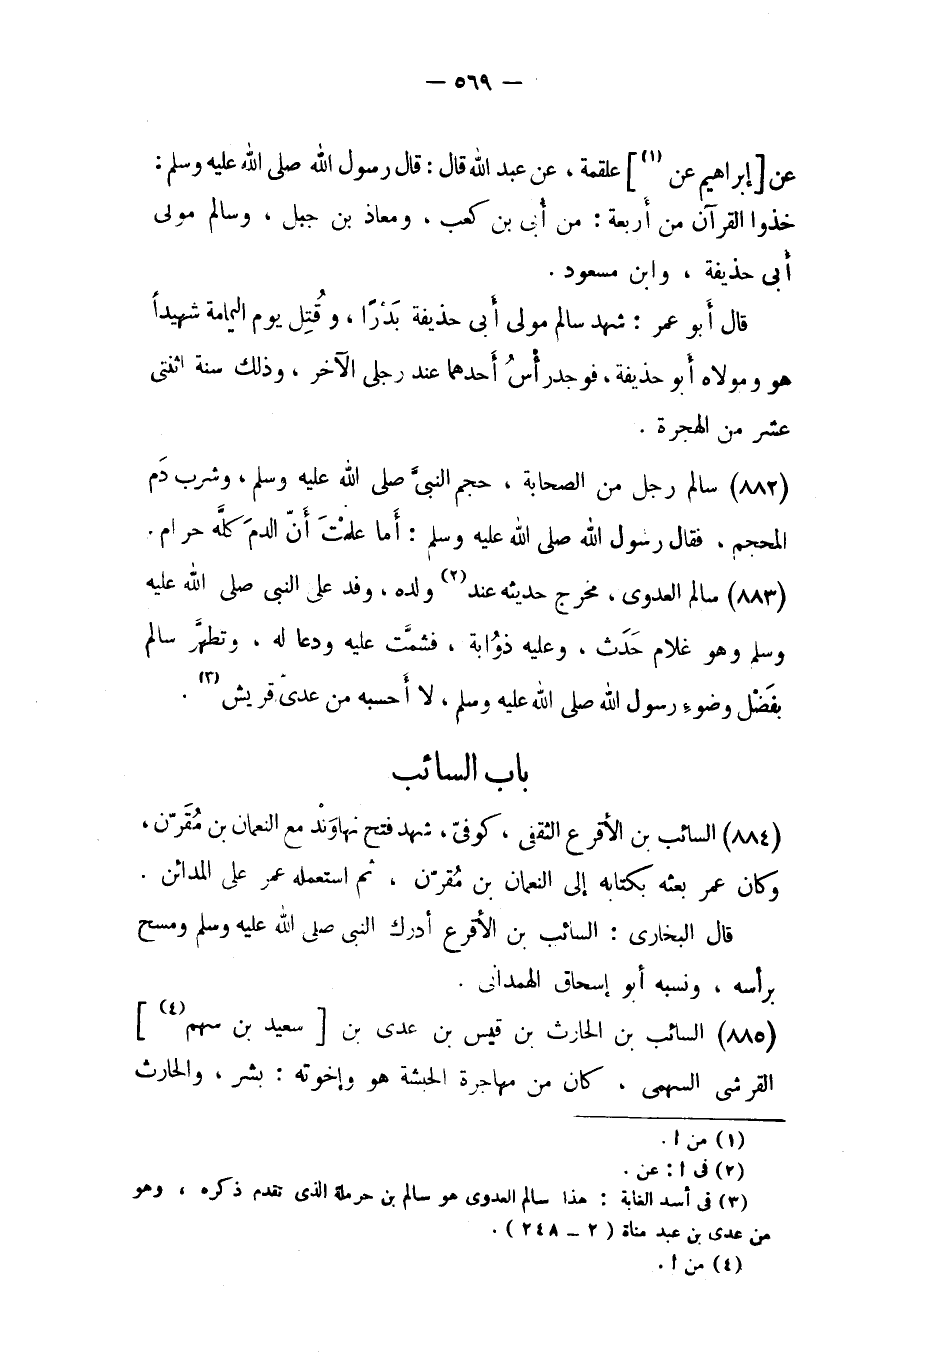 — ٥٦٩ —
عن [إبراهيم عن (١)] علقمة ، عن عبد الله قال : قال رسول الله صلى الله عليه وسلم :
خذوا القرآن من أربعة : من أُبى بن كعب ، ومعاذ بن جبل ، وسالم مولى
أبى حذيفة ، وابن مسعود .
قال أبو عمر : شهد سالم مولى أبى حذيفة بَدْرًا ، وقُتِل يوم اليمامة شهيداً
هو ومولاه أبو حذيفة ، فوجد رأْسُ أَحدهما عند رجلى الآخر ، وذلك سنة اثنتى
عشر من الهجرة .
(٨٨٢) سالم رجل من الصحابة ، حجم النبىَّ صلى الله عليه وسلم ، وشرب دَم
المحجم ، فقال رسول الله صلى الله عليه وسلم : أَما علمْتَ أَنّ الدمَ كلَّه حرام .
(٨٨٣) سالم العدوى ، مخرج حديثه عند (٢) ولده ، وفد على النبى صلى الله عليه
وسلم وهو غلام حَدَث ، وعليه ذؤابة ، فشمَّت عليه ودعا له ، وتطهَّر سالم
بفَضْل وضوءِ رسول الله صلى الله عليه وسلم ، لا أَحسبه من عدىّ قريش (٣) .
باب السائب
(٨٨٤) السائب بن الأقرع الثقفى ، كوفىّ ، شهد فتح نهاوَنْد مع النعمان بن مُقَرّن ،
وكان عمر بعثه بكتابه إلى النعمان بن مُقرّن ، ثم استعمله عمر على المدائن .
قال البخارى : السائب بن الأقرع أدرك النبى صلى الله عليه وسلم ومسح
برأسه ، ونسبه أبو إسحاق الهمدانى .
(٨٨٥) السائب بن الحارث بن قيس بن عدى بن [ سعيد بن سهم (٤) ]
القرشى السهمى ، كان من مهاجرة الحبشة هو وإخوته : بشر ، والحارث
(١) من ا .
(٢) فى ا : عن .
(٣) فى أسد الغابة : هذا سالم العدوى هو سالم بن حرملة الذى تقدم ذكره ، وهو
من عدى بن عبد مناة ( ٢ – ٢٤٨ ) .
(٤) من ا .